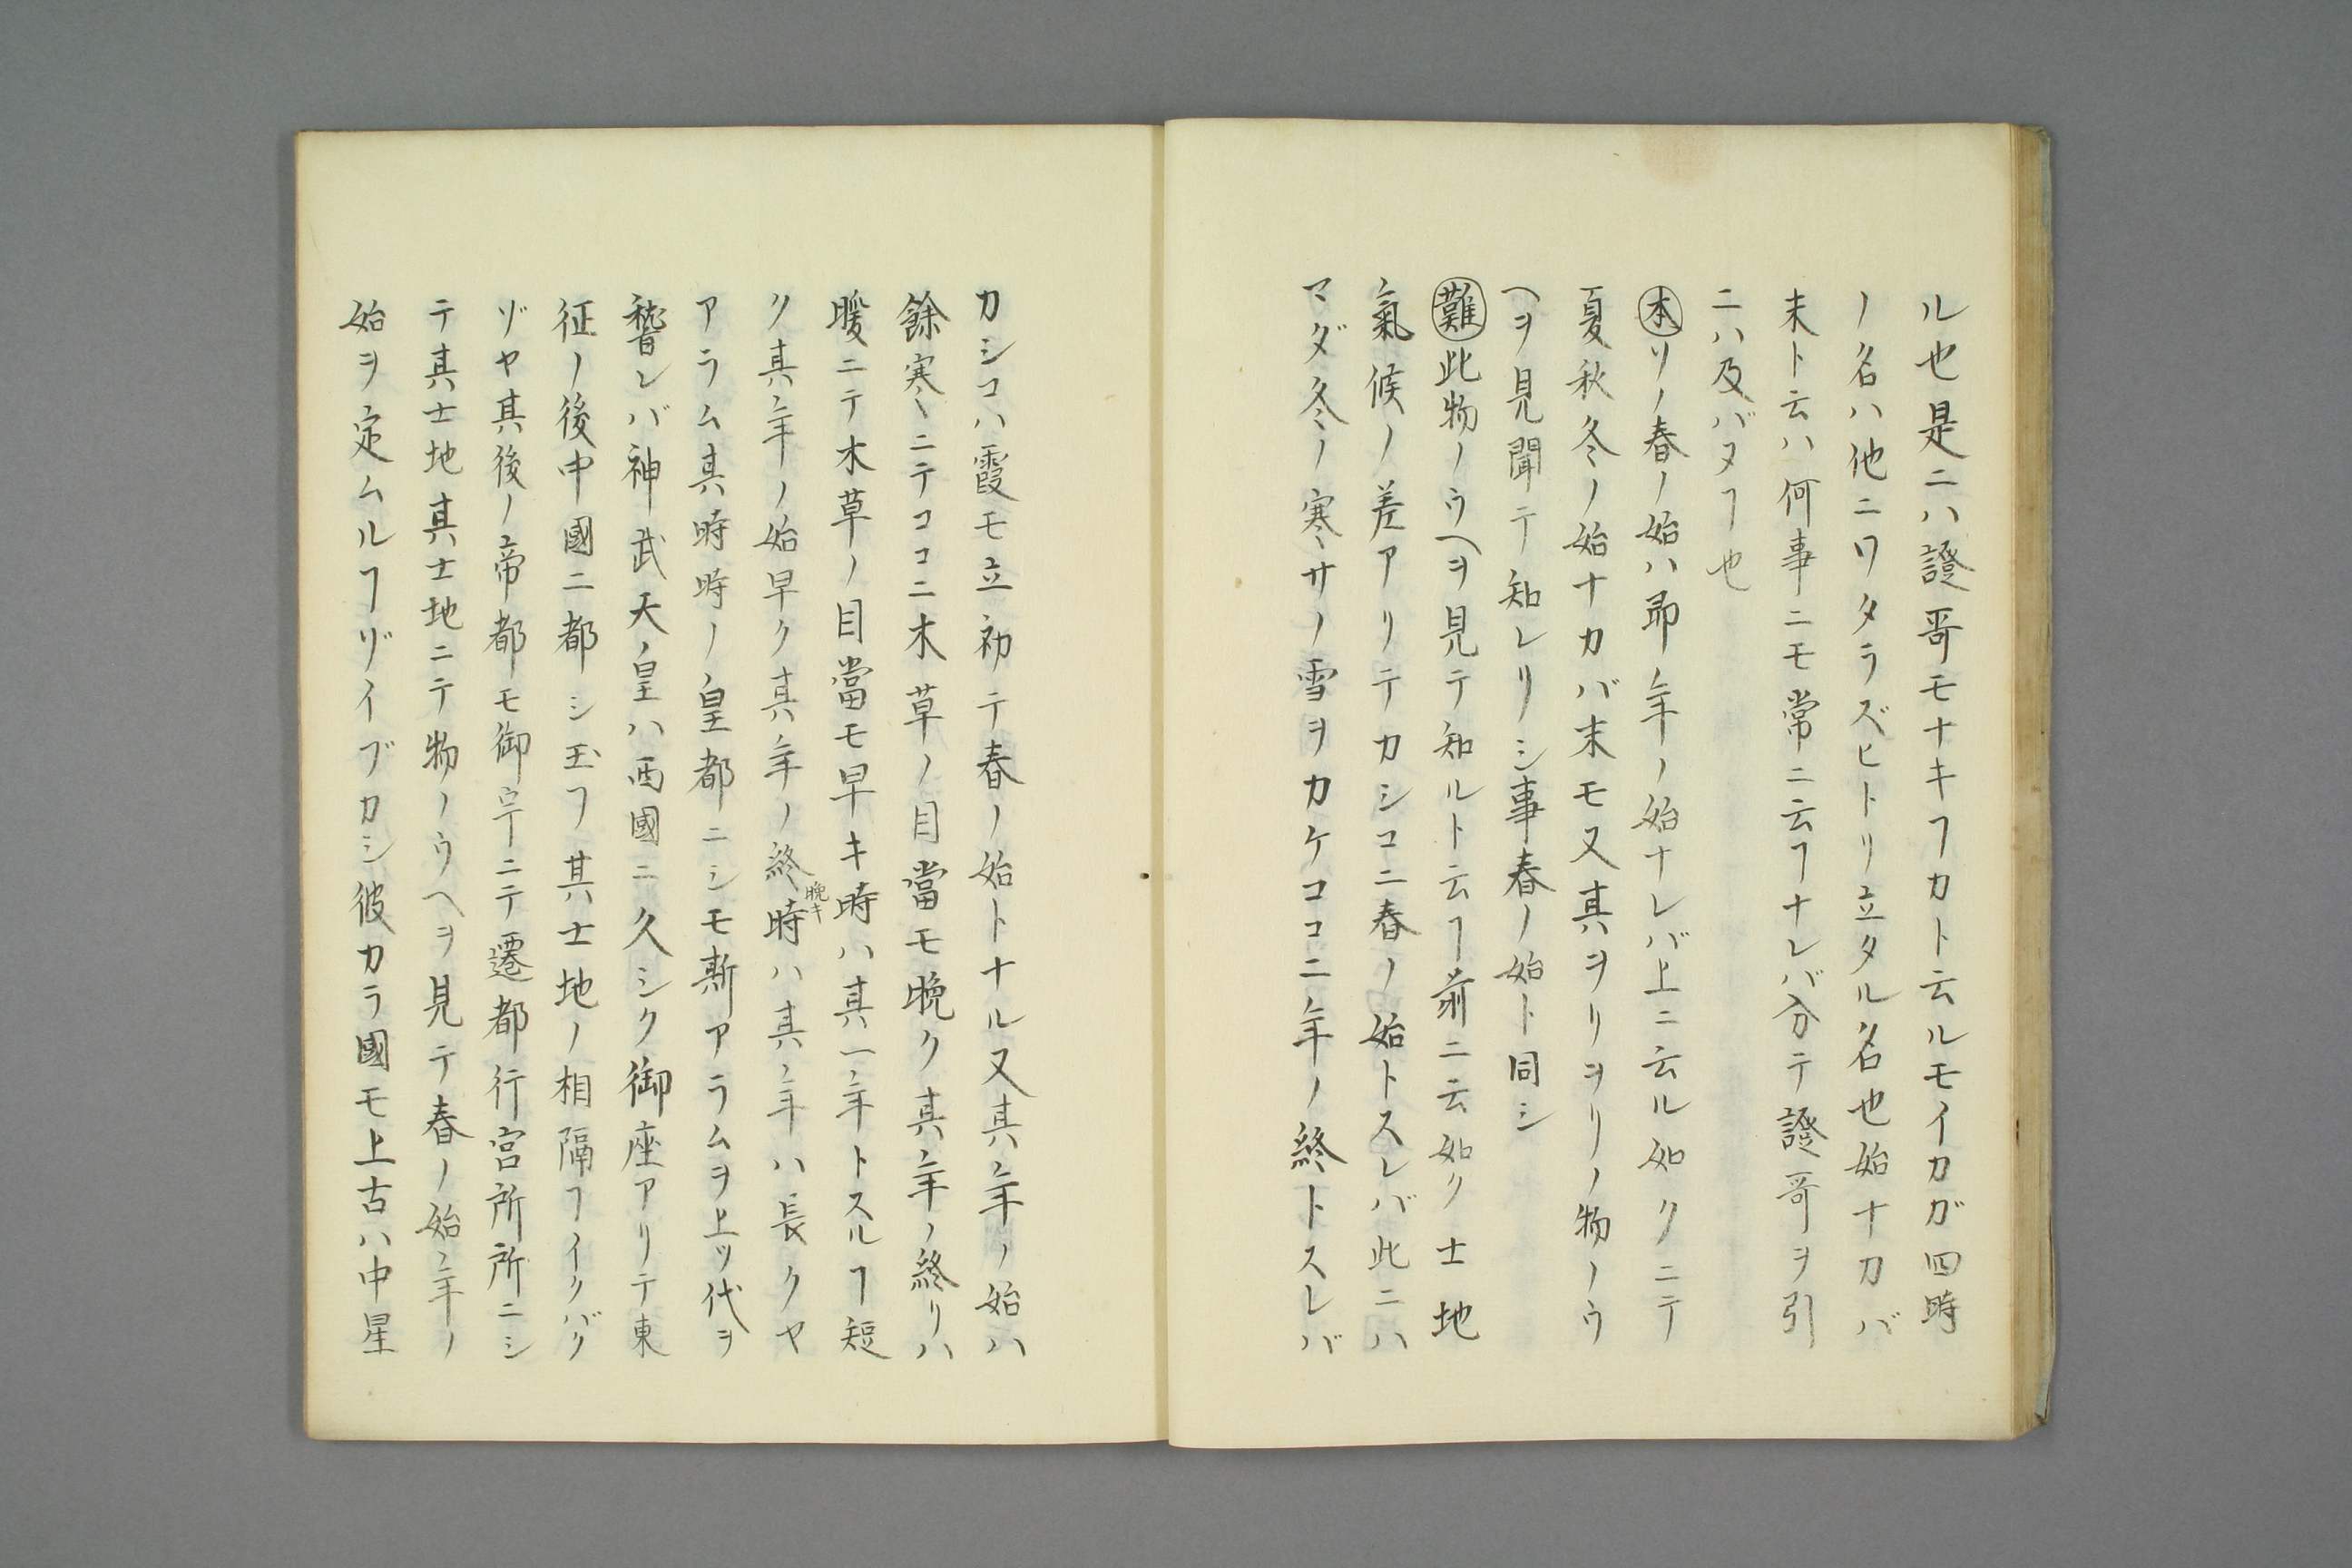 ル也是ニハ證哥モナキヿカト云ルモイカガ四時
ノ名ハ他ニワタラズヒトリ立タル名也始ナカバ
末ト云ハ何事ニモ常ニ云ヿナレバ分テ證哥ヲ引
ニハ及バヌヿ也
本ソノ春ノ始ハ即年ノ始ナレバ上ニ云ル如クニテ
夏秋冬ノ始ナカバ末モ又其ヲリヲリノ物ノウ
ヘヲ見聞テ知レリシ事春ノ始ト同シ
難此物ノウヘヲ見テ知ルト云ヿ前ニ云如ク土地
ノ氣候ノ差アリテカシコニ春ノ始トスレバ此ニハ
マダ冬ノ寒サノ雪ヲカケココニ年ノ終トスレバ
カシコハ霞モ立初テ春ノ始トナル又其年ノ始ハ
餘寒ニテココニ木草ノ目當モ晩ク其年ノ終リハ
暖ニテ木草ノ目當モ早キ時ハ其一年トスルヿ短
ク其年ノ始早ク其年ノ終晩キ時ハ其年ハ長クヤ
アラム其時時ノ皇都ニシモ斯アラムヲ上ツ代ヲ
稽レバ神武天皇ハ西國ニ久シク御座アリテ東
征ノ後中國ニ都シ玉フ其土地ノ相隔ヿイクバク
ゾヤ其後ノ帝都モ御宇ニテ遷都行宮所所ニシ
テ其土地其土地ニテ物ノウヘヲ見テ春ノ始年ノ
始ヲ定ムルヿゾイブカシ彼カラ國モ上古ハ中星